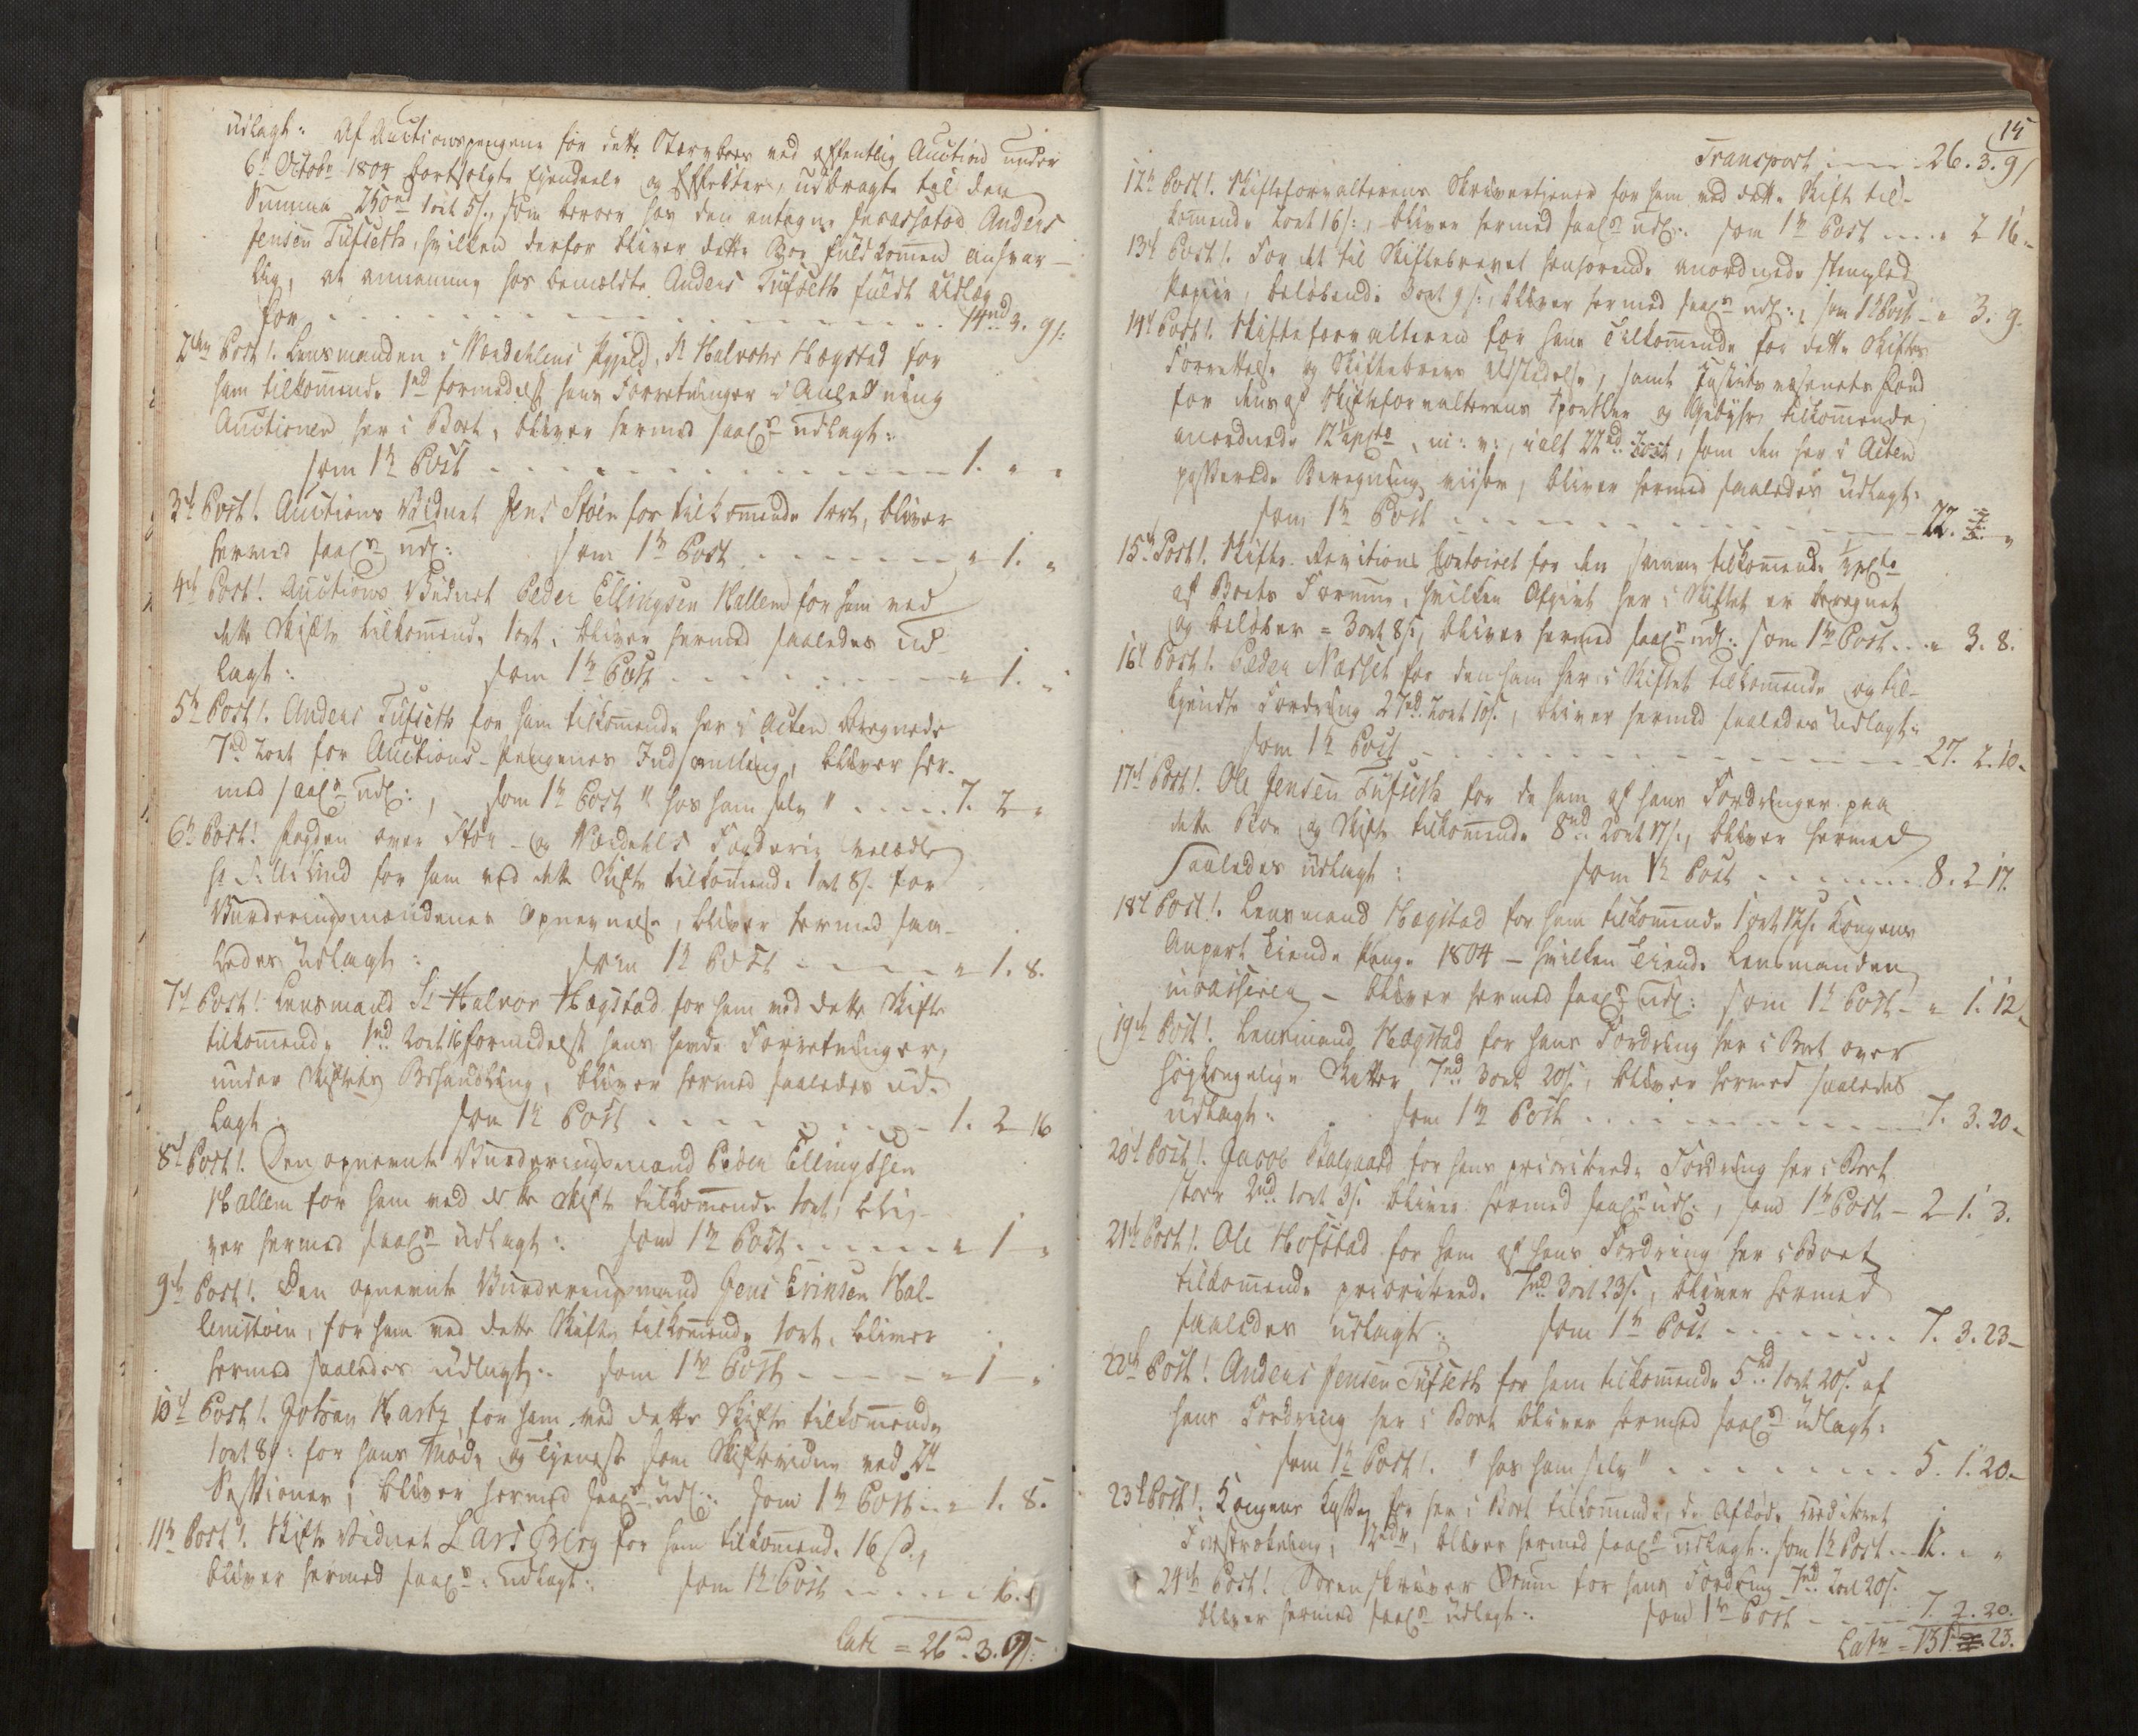 udlagt: Af Auctionspengene for dette Stervboes ved offentlig Auction under
6te Octobr 1804 bortsolgte Eyendeele og Effekter, udbragte til den
Summa 250rd 1ort 5s., som beroer hos den antagne Incassator Anders
Jensen Tüfseth, hvilken derfor bliver dette Boe fuldkommen ansvar-
lig, at annamme hos bemeldte Anders Tüfseth fuldt Udlæg
for . . . 14rd 3. 9s:
2den Post!. Lensmanden i Værdahlens Pgjeld, Sr Halvohr Hægstad for
ham tilkommende 1rd formedelst hans Forretninger i Anledning
Auctionen her i Boet, bliver hermed saal. udlagt:
som 1te Post . . . 1. " "
3de Post!. Auctions Vidnet Jens Stoen for tilkommende 1ort, bliver
hermed saal. udl: som 1te Post . . . " 1. "
4de Post!. Auctions Vidnet Peder Ellingsen Hallem for ham ved
dette Skifte tilkommende 1ort; bliver hermed saaledes ud-
lagt: som 1te Post . . . " 1. "
5te Post!. Anders Tüfseth for ham tilkommende her i Acten beregnede
7rd 2ort for Auctions-Pengenes Indsamling, bliver her-
med saal. udl:, som 1te Post " hos ham selv " . . . 7. 2 "
6te Post! Fogden over Stør- og Værdahls Fogderie velædle
Hr. Lind for ham ved dette Skifte tilkommende 1ort 8s. for
Vurderingsmændenes Opnevnelse, bliver hermed saa-
ledes udlagt: som 1te Post . . . " 1. 8.
7de Post! Lensmand Sr Halvor Hægstad for ham ved dette Skifte
tilkommende 1rd 2ort 16 formedelst hans havde Forretninger,
under Skiftets Behandling, bliver hermed saaledes ud-
lagt: som 1te Post . . . 1. 2 16
8de Post!. Den opnevnte Vurderingsmand Peder Ellingssen
Hallem for ham ved dette Skifte tilkommende 1ort, bli-
ver hermed saal. udlagt: som 1te Post . . . " 1 "
9de Post!. Den opnevnte Vurderingsmand Jens Erichsen Hal-
lemstoen, for ham ved dette Skifte tilkommende 1ort, bliver
hermed saaledes udlagt: som 1te Post . . . " 1 "
10de Post!. Johan Harby for ham ved dette Skifte tilkommende
1ort 8s: for hans Møde og Tjeneste som Skiftevidne ved 2de
Sessioner; bliver hermed saal. udl: som 1te Post . . " 1. 8.
11te Post!. Skifte Vidnet Lars Berg for ham tilkommende 16s.,
bliver hermed saal. udlagt: som 1te Post . . . 16.
Late = 26rd. 3. 9s:
15
Transport . . . 26. 3. 9s
12te Post!. Skifteforvalterens Skrivertjener for ham ved dette Skifte til-
kommende 2ort 16s:, bliver hermed saal. udl: som 1te Post . . . " 2 16.
13de Post!. For det til Skiftebrevet henhørende anordnede stemplede
Papiir, beløbende 3ort 9s:, bliver hermed saal. udl:, som 1te Post - " 3. 9.
14de Post!. Skifteforvalteren for hans Tilkommende for dette Skiftes
Forrettelse og Skiftebrevs Udstedelse, samt Justitsvæsenets Fond
for dens af Skifteforvalterens Sportler og Gebyhr tilkommende
anordnede 12½ pCto, m: v:, ialt 22rd, som den her i Acten
passerede Beregning viiser, bliver hermed saaledes udlagt:
som 1te Post . . . 22. "
15de Post!. Skifte-Revitions Contoiret for den samme tilkommende ½ pCto
af Boets Formue, hvilken Afgivt her i Skiftet er beregnet
og beløber = 3ort 8s:, bliver hermed saal. udl: som 1te Post . . " 3. 8.
16de Post!. Peder Næsset for den ham her i Skiftet tilkommende og til-
kjendte Fordring 27rd 2ort 10s., bliver hermed saaledes udlagt:
som 1te Post . . . 27. 2. 10.
17de Post!. Ole Jensen Tüfseth for de ham af hans Fordringer paa
dette Boe og Skifte tilkommende 8rd 2ort 17s., bliver hermed
saaledes udlagt: som 1te Post . . . 8. 2 17.
18de Post!. Lensmand Hægstad for ham tilkommende 1ort 12s. Kongens
Anpart Tiende Penge 1804 - hvilken Tiende Lensmanden
incasserer - bliver hermed saal. udl: som 1te Post - " 1. 12.
19de Post!. Lensmand Hægstad for hans Fordring her i Boet over
høykongelige Skatter 7rd 3ort 20s., bliver hermed saaledes
udlagt: som 1te Post . . . 7. 3. 20.
20de Post!. Jacob Balgaard for hans prioriterede Fordring her i Boet
stoer 2rd 1ort 3s. bliver hermed saal. udl:, som 1te Post - 2 1. 3.
21de Post!. Ole Hofstad for ham af hans Fordring her i Boet
tilkommende prioriterede 7rd 3ort 23s., bliver hermed
saaledes udlagt: som 1te Post . . . 7. 3. 23
22de Post! Anders Jensen Tüfseth for ham tilkommende 5rd 1ort 20s. af
hans Fordring her i Boet bliver hermed saal. udlagt:
som 1te Post!. " hos ham selv " . . . 5. 1. 20.
23de Post!. Kongens Kasse for her i Boet tilkommende, de Afdøde krediteret
Forstrækning, 12rd, bliver hermed saal. udlagt: som 1te Post . . 12. " "
24de Post! Sorenskriver Ørum for hans Fordring 7rd 2ort 20s.
bliver hermed saal. udlagt: som 1te Post . . . 7. 2. 20.
Late = 131. 23.